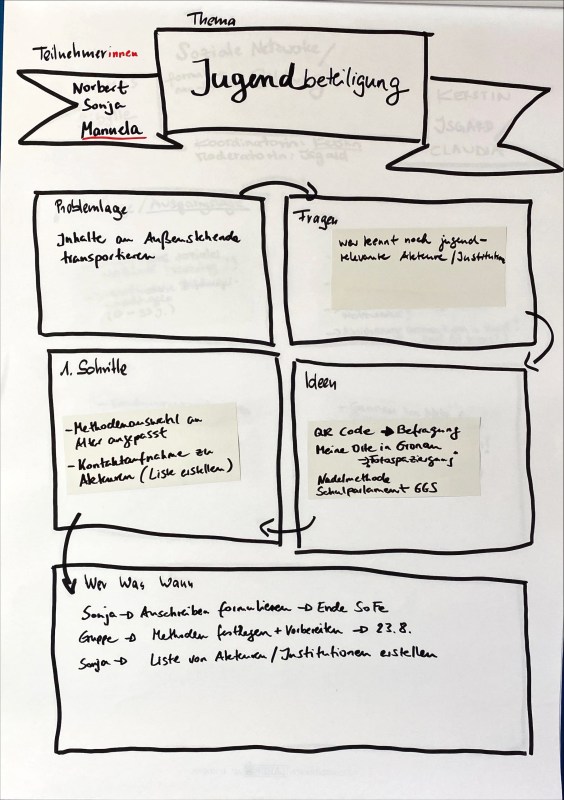 Thema
Teilnehmerinnen
Jugendbeteiligung
Norbert
Sonja
Manuela
Problemlage
Inhalte an Außenstehende
transportieren
Fragen
Wer kennt noch jugend-
relevante Akteure/Institution
1. Schritte
- Methodenauswahl an
Alter angepasst
- Kontaktaufnahme zu
Akteuren (Liste erstellen)
Ideen
QR Code → Befragung
Meine Orte in Gronau
→ Fotospaziergang
Nadelmethode
Schulparlament GGS
Wer Was Wann
Sonja → Anschreiben formulieren → Ende SoFe
Gruppe → Methoden festlegen + Vorbereiten → 23.8.
Sonja → Liste von Akteuren/Institutionen erstellen